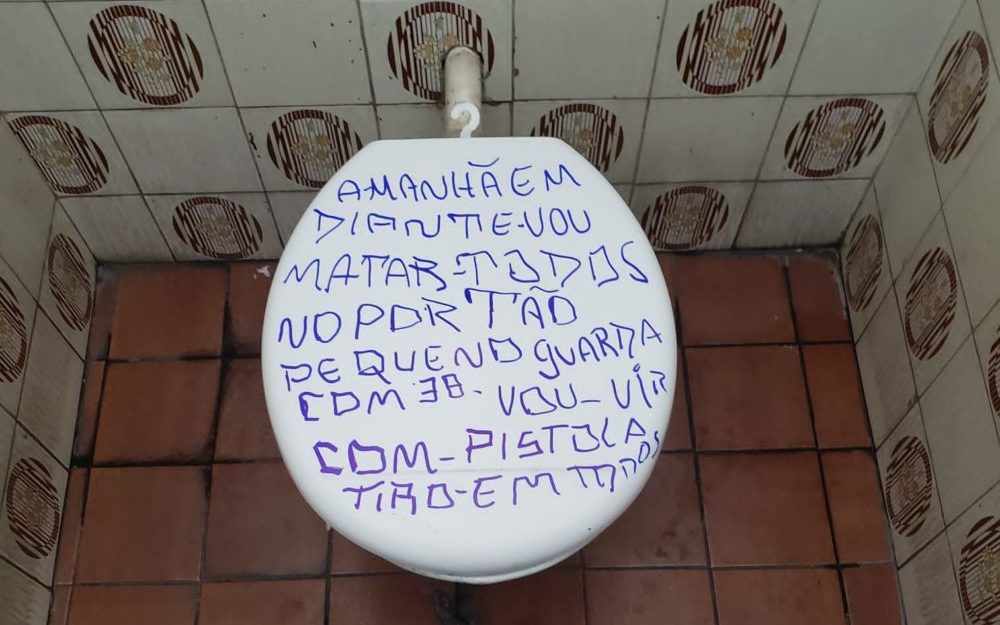 AMANHÃ EM
DIANTE-VOU
MATAR-TODOS
NO PORTÃO
PEQUENO GUARDA
COM 38-VOU-VIR
COM-PISTOLA
TIRO-EM TODOS